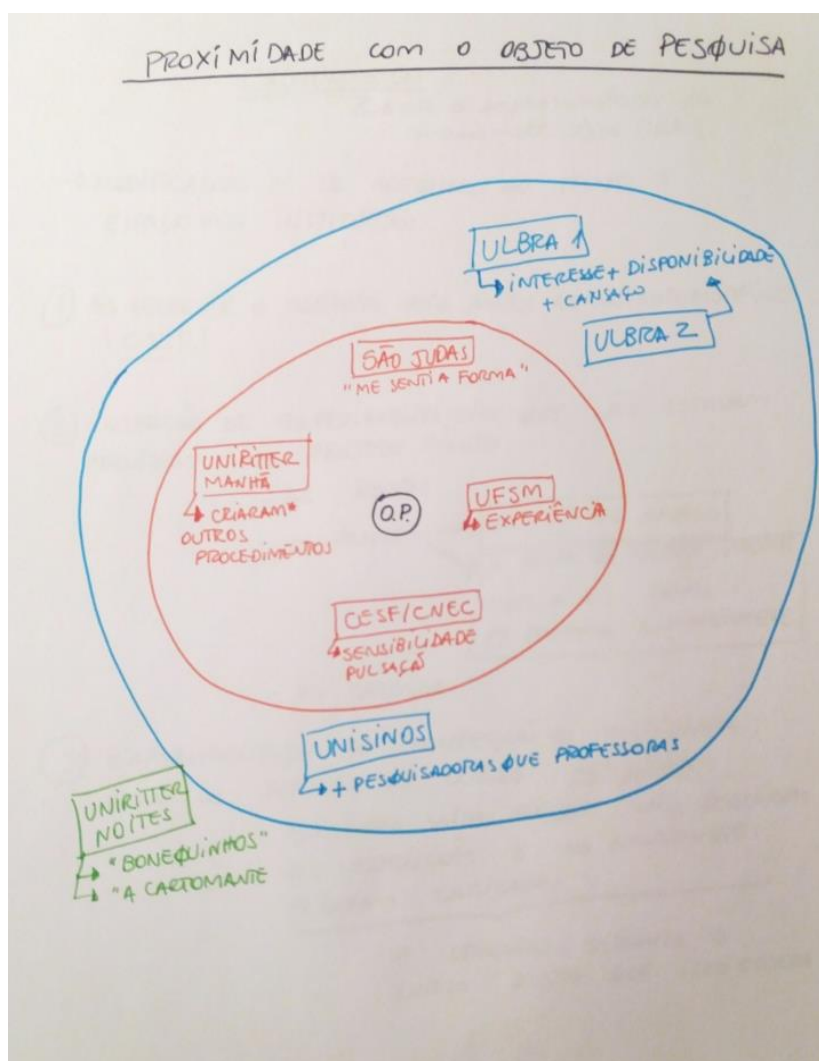 PROXIMIDADE COM O OBJETO DE PESQUISA
ULBRA 1
INTERESSE + DISPONIBILIDADE
+ CANSAÇO
ULBRA 2
SÃO JUDAS
"ME SENTI A FORMA"
UNIRITTER
MANHÃ
CRIARAM*
OUTROS
PROCEDIMENTOS
O.P.
UFSM
EXPERIÊNCIA
CESF/CNEC
SENSIBILIDADE
UNISINOS
+ PESQUISADORAS QUE PROFESSORAS
UNIRITTER
NOITES
"BONEQUINHOS"
"A CARTOMANTE